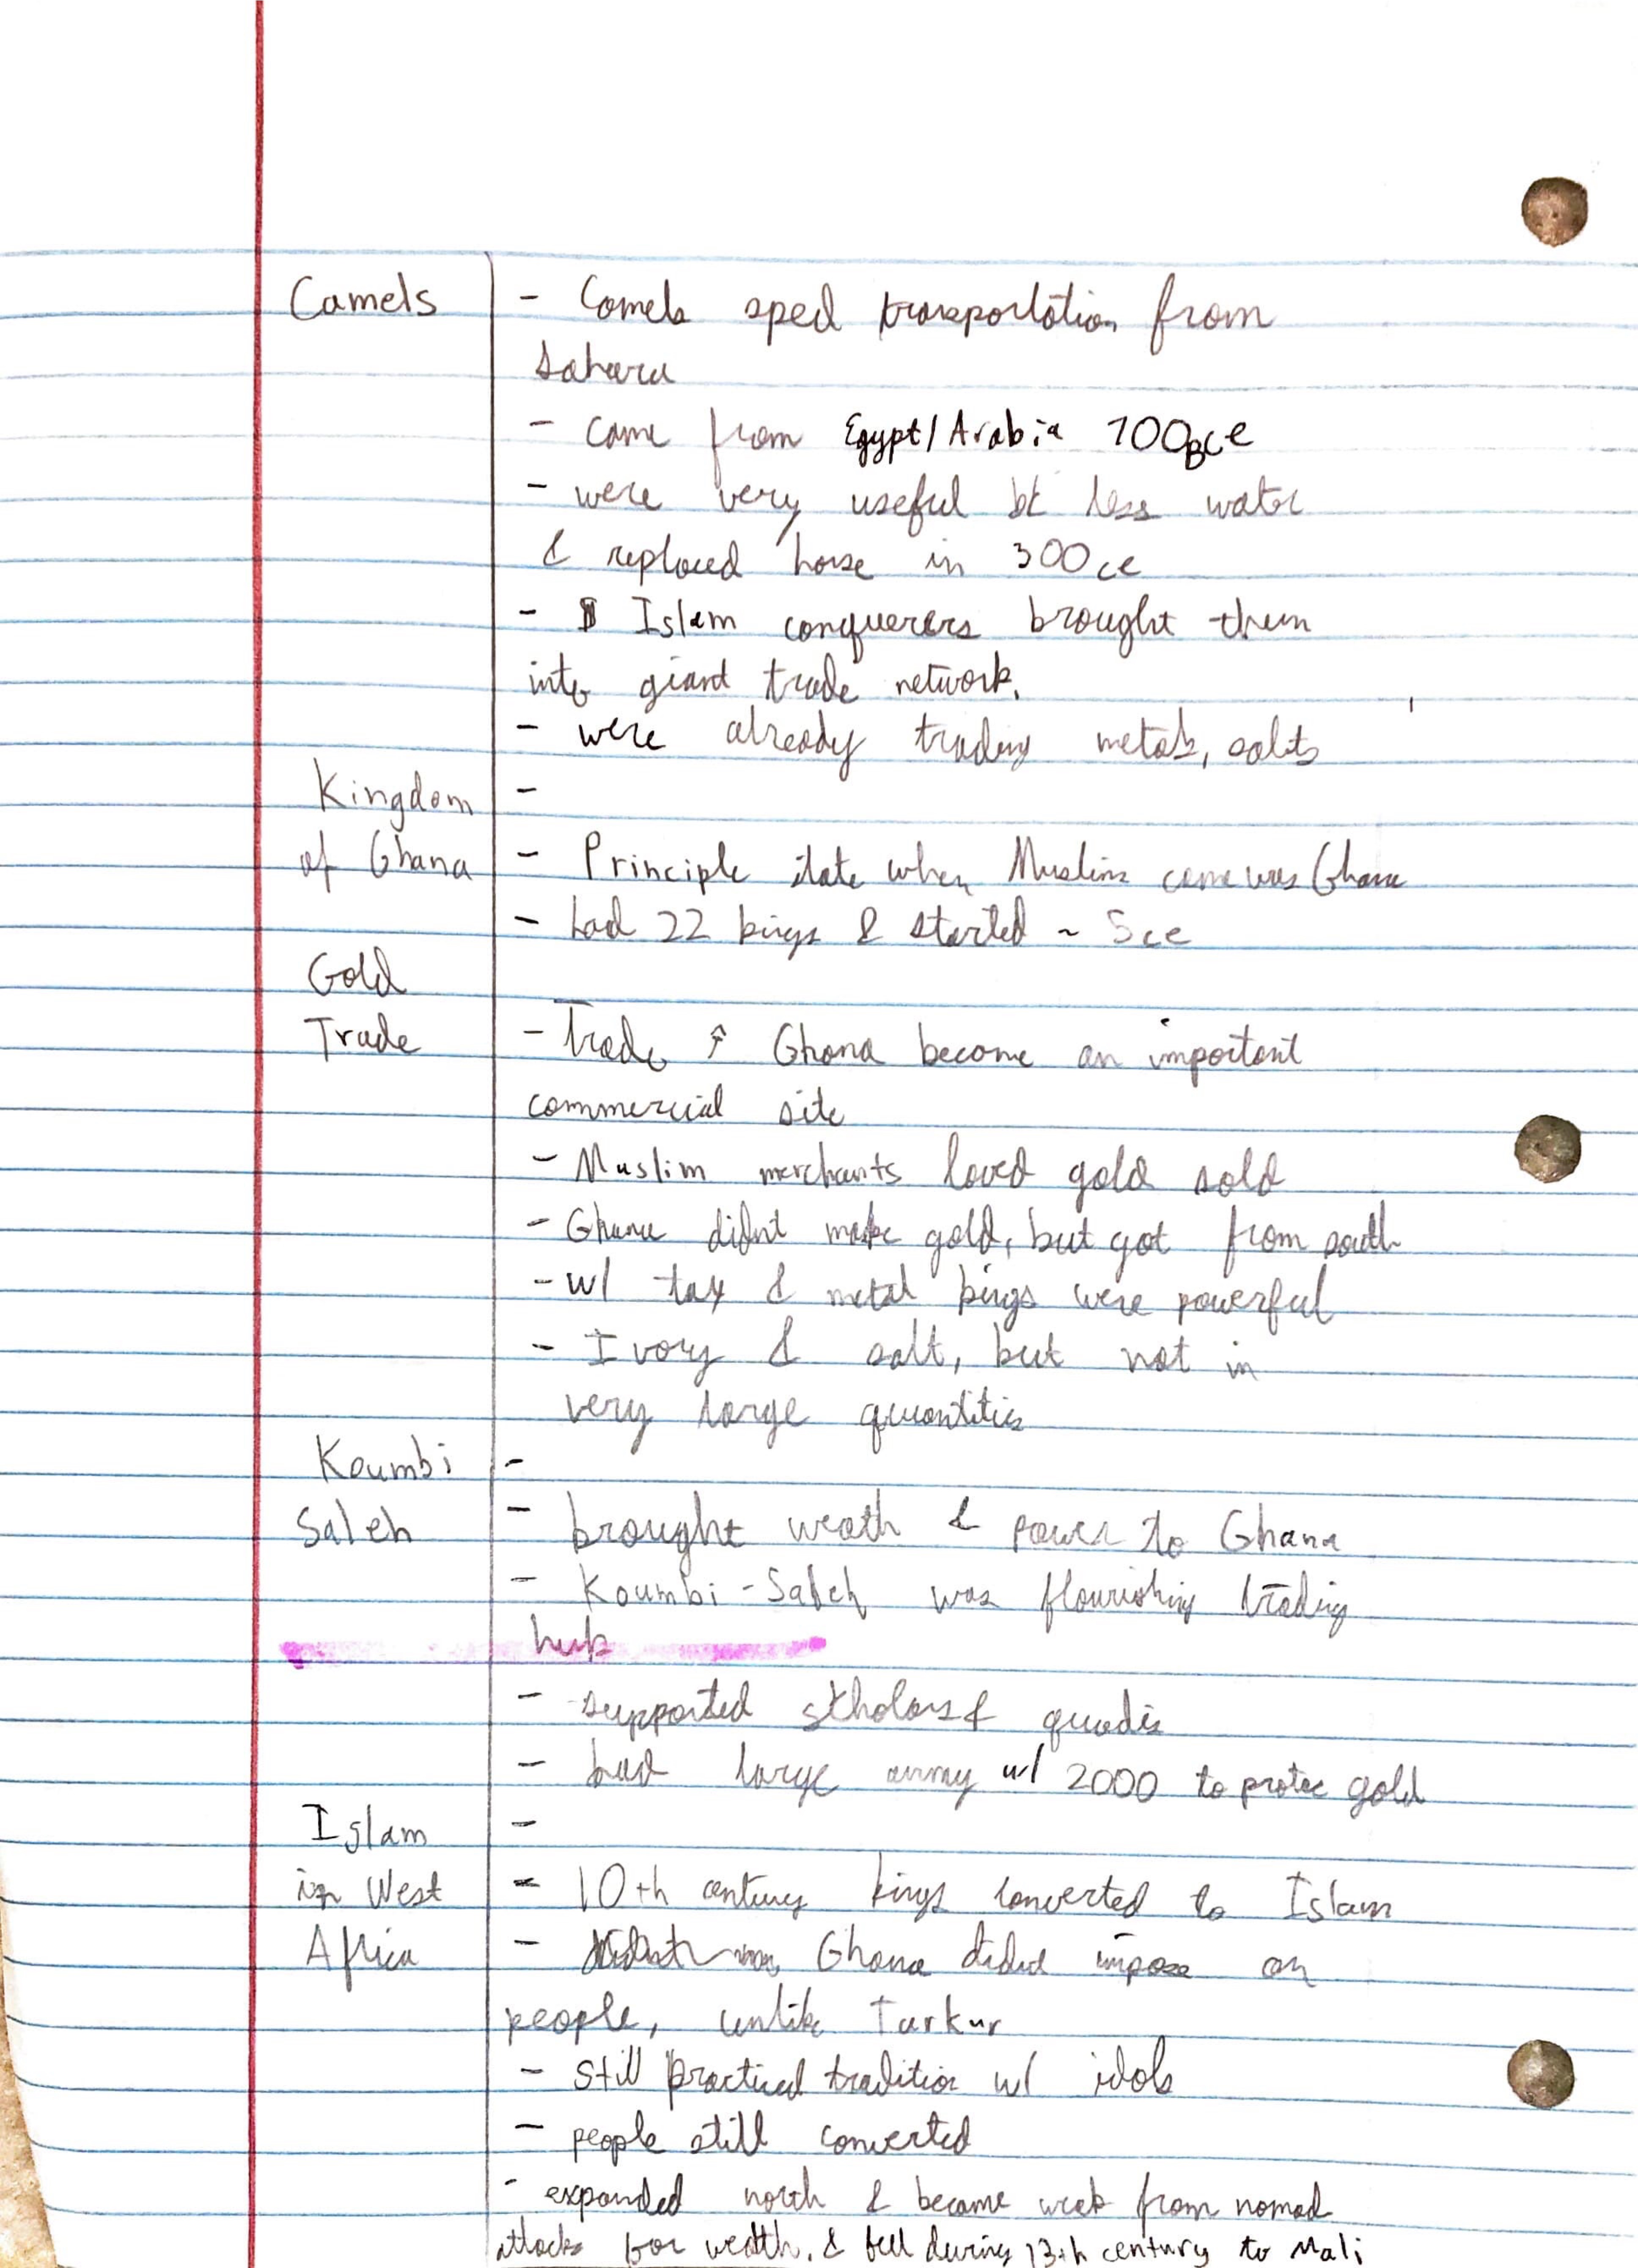 Camels - Camels sped transportation from
Sahara
- came from Egypt/Arabia 100BCe
- were very useful bc less water
& replaced horse in 300ce
- Islam conquerers brought them
into giant trade network.
- were already trading metals, salts
Kingdom -
of Ghana - Principle state when Muslims came was Ghana
- had 22 kings & started ~ 5ce
Gold
Trade - Trade ↑ Ghana become an important
commercial site
- Muslim merchants loved gold sold
- Ghana didnt make gold, but got from south
- w/ tax & metal kings were powerful
- Ivory & salt, but not in
very large quantities
Koumbi -
Saleh - brought weath & power to Ghana
- Koumbi-Saleh was flourishing trading
hub
- supported scholars & quadis
- had large army w/ 2000 to protec gold
Islam -
in West - 10th century kings converted to Islam
Africa - Ghana didnt impose on
people, unlike Tarkur
- still practiced tradition w/ idols
- people still converted
- expanded north & became weak from nomad
attacks for wealth, & fell during 13th century to Mali